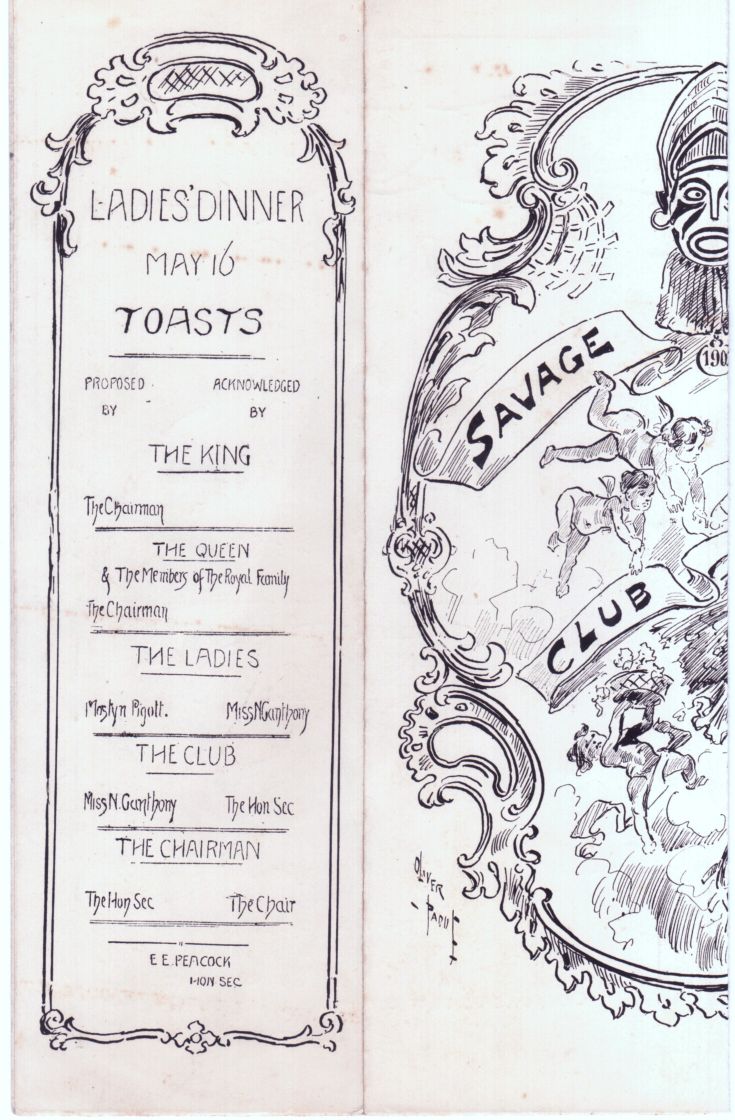 LADIES' DINNER
MAY 16
TOASTS
PROPOSED BY
ACKNOWLEDGED BY
THE KING
The Chairman
THE QUEEN
& The Members of The Royal Family
The Chairman
THE LADIES
Mostyn Pigott. Miss N Ganthony
THE CLUB
Miss N. Ganthony The Hon Sec
THE CHAIRMAN
The Hon Sec The Chair
E E. PEACOCK
HON SEC
SAVAGE
190
CLUB
OLIVER